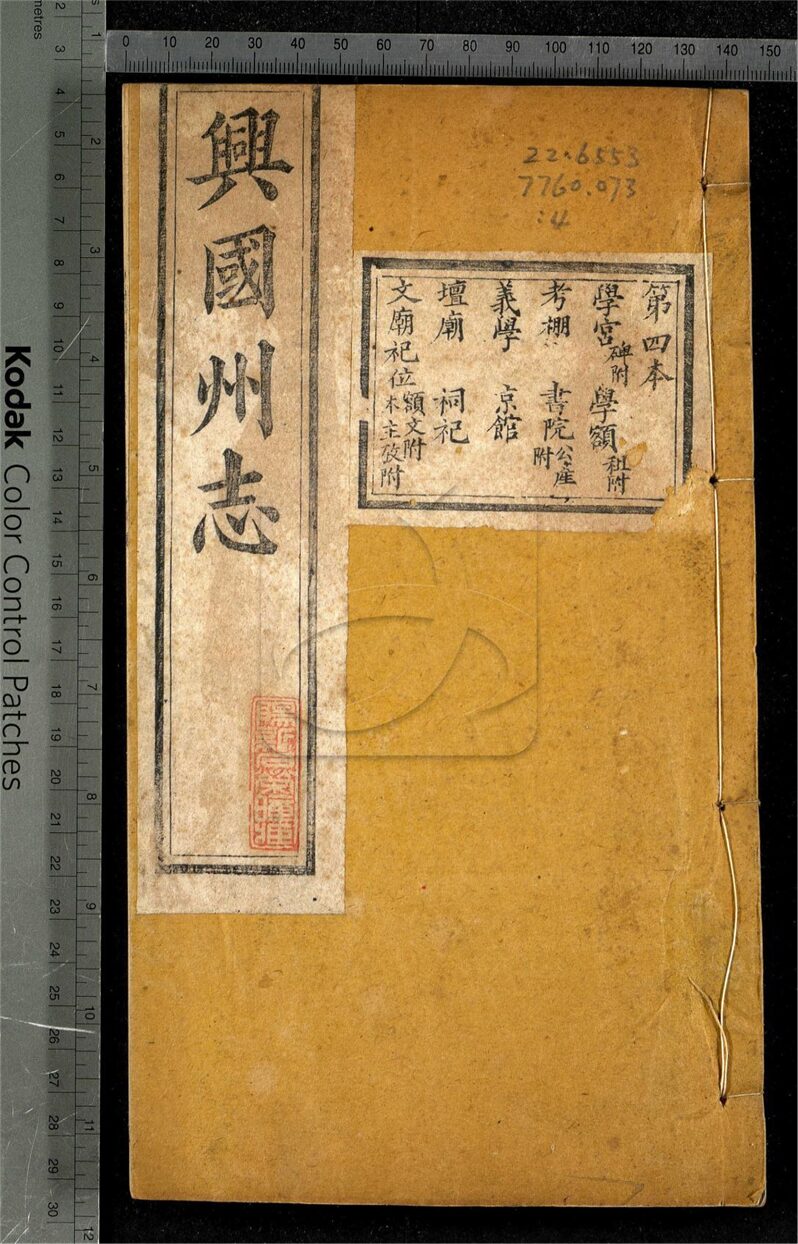 興國州志
22.6553
7760.073
:4
第四本
學宮碑附 學額租附
考棚 書院公產附
義學 京館
壇廟 祠祀
文廟祀位額文附木主攷附
Kodak Color Control Patches
metres
0 10 20 30 40 50 60 70 80 90 100 110 120 130 140 150
2 3 4 5 6 7 8 9 10 11 12 13 14 15 16 17 18 19 20 21 22 23 24 25 26 27 28 29 30
1 2 3 4 5 6 7 8 9 10 11 12